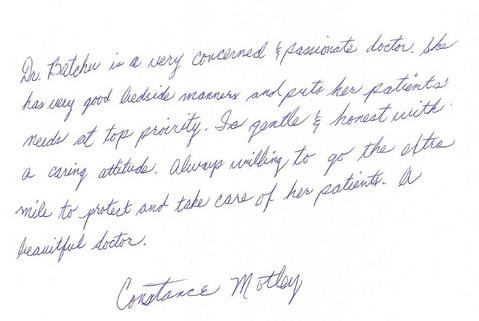 Dr. Batchu is a very concerned & passionate doctor. She
has very good bedside manners and puts her patients'
needs at top proirity. Is gentle & honest with
a caring attitude. Always willing to go the extra
mile to protect and take care of her patients. A
beautiful doctor.
Constance Motley